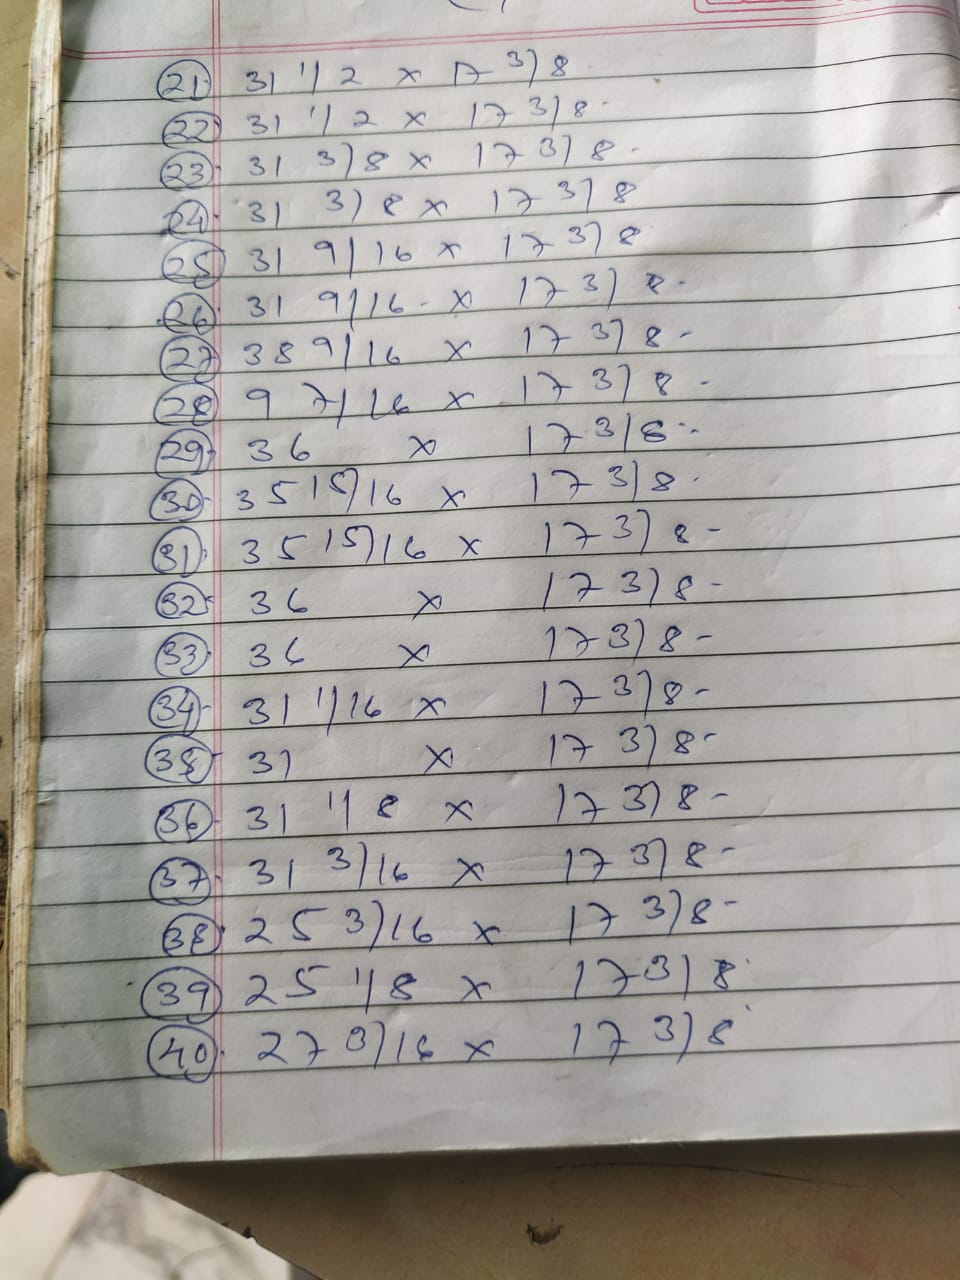 21 31 1/2 x 17 3/8
22 31 1/2 x 17 3/8.
23 31 3/8 x 17 3/8.
24 31 3/8 x 17 3/8
25 31 9/16 x 17 3/8
26 31 9/16 x 17 3/8.
27 38 9/16 x 17 3/8 -
28 9 7/16 x 17 3/8 -
29 36 x 17 3/8 -
30 35 15/16 x 17 3/8.
31 35 15/16 x 17 3/8 -
32 36 x 17 3/8 -
33 36 x 17 3/8 -
34 31 1/16 x 17 3/8 -
35 31 x 17 3/8 -
36 31 1/8 x 17 3/8 -
37 31 3/16 x 17 3/8 -
38 25 3/16 x 17 3/8 -
39 25 1/8 x 17 3/8
40 27 3/16 x 17 3/8